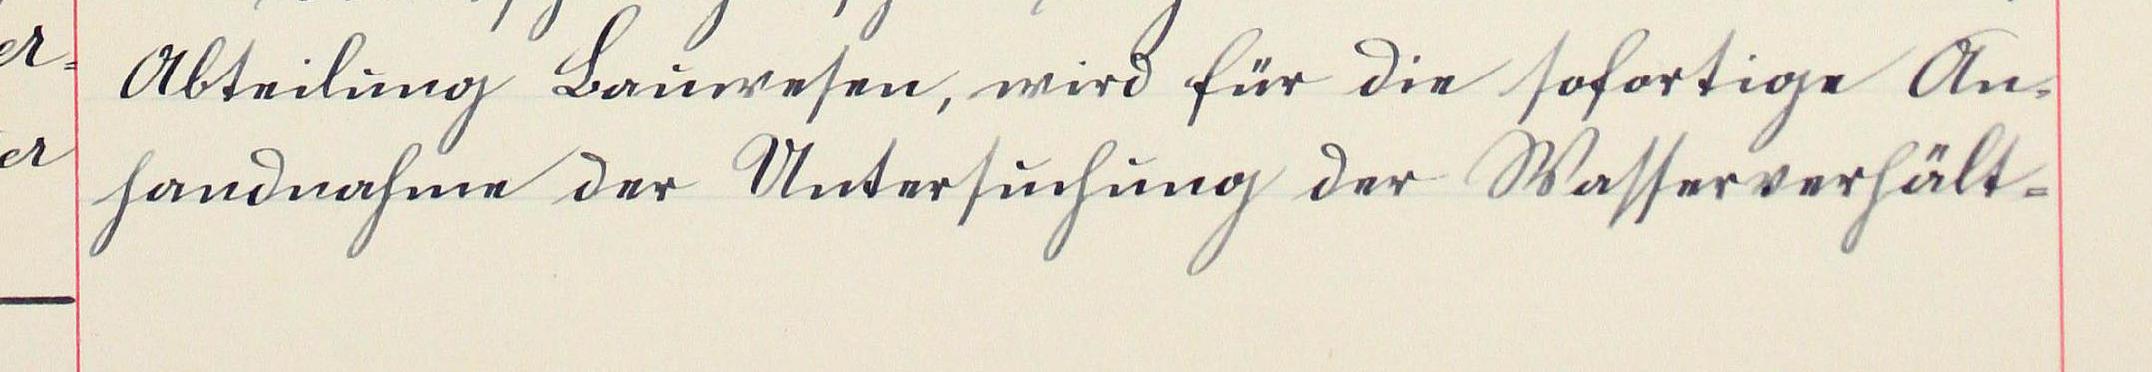 er- Abteilung Bauwesen, wird für die sofortige An-
er handnahme der Untersuchung der Wasserverhält-